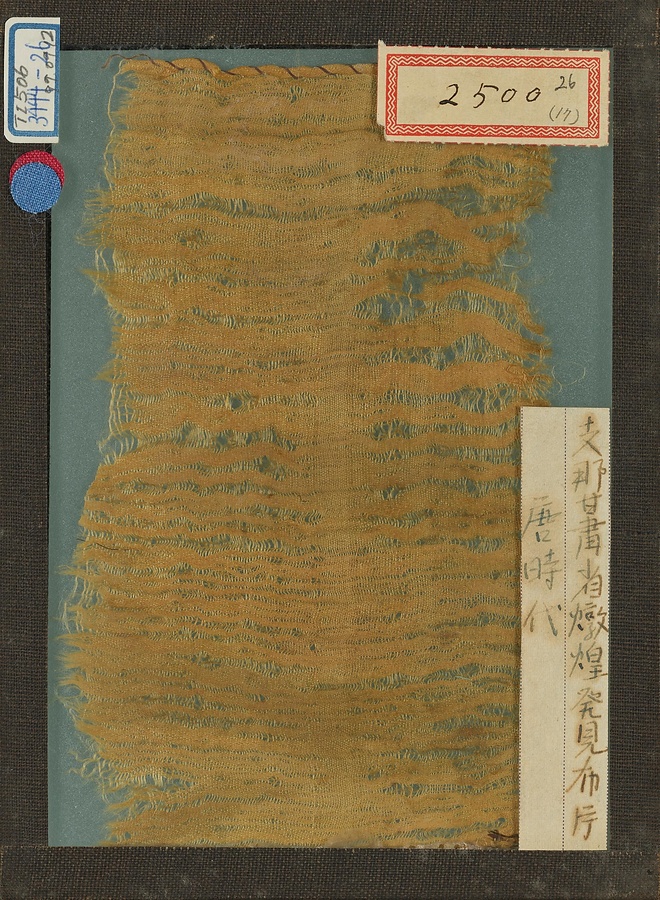 TL506
3444-262
2500
26
(17)
支那甘肅省燉煌発見布片
唐時代